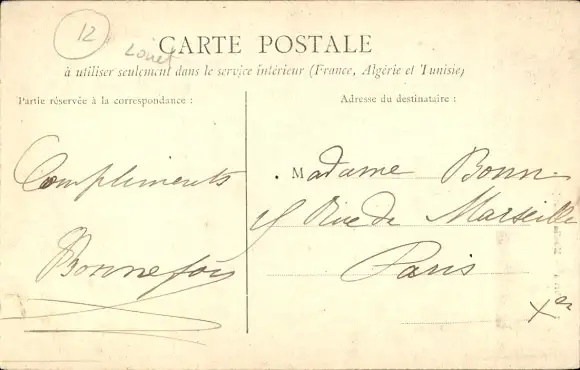 12
Loiret
CARTE POSTALE
à utiliser seulement dans le service intérieur (France, Algérie et Tunisie)
Partie réservée à la correspondance :
Compliments
Bonnefoy
Adresse du destinataire :
Madame Bonn
Rue de Marseille
Paris
Xe